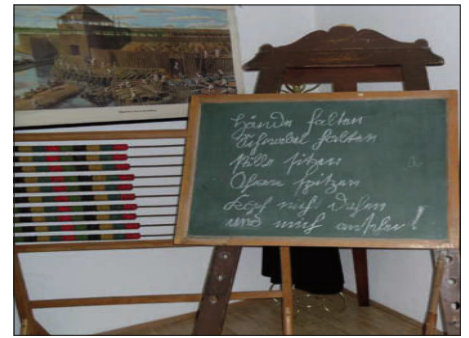 Hände falten
Schnabel halten
stille sitzen
Ohren spitzen
Kopf nicht drehen
und mich ansehen!